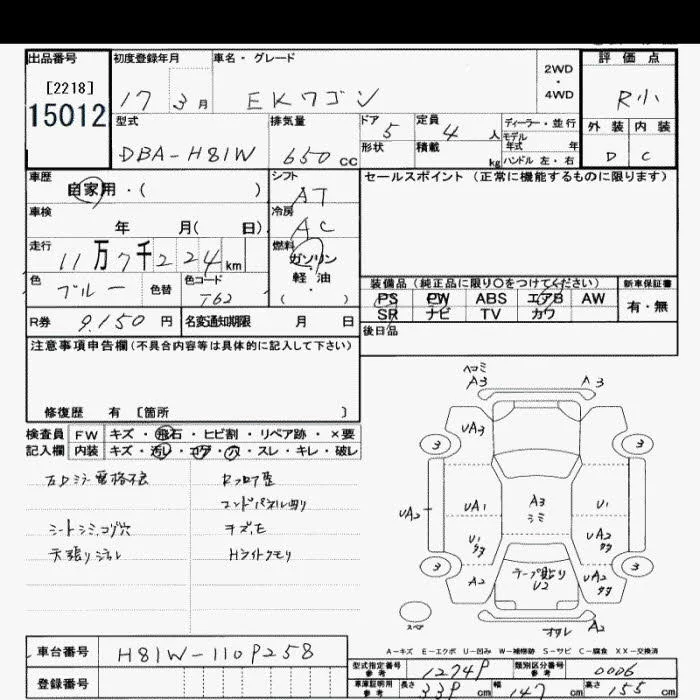 出品番号
[2218]
15012
初度登録年月
17 3月
車名・グレード
EKワゴン
2WD
・
4WD
評価点
R小
外装 内装
D C
型式
DBA-H81W
排気量
650 cc
ドア 5
形状
定員 4 人
積載 kg
ディーラー・並行
モデル
年式 年
ハンドル 左・右
車歴
自家用・( )
シフト
AT
セールスポイント(正常に機能するものに限ります)
車検
年 月( 日)
冷房
AC
走行
11万7千224km
燃料
ガソリン
軽・油
( ・ )
色
ブルー
色替
色コード
T62
装備品(純正品に限り〇をつけてください)
PS PW ABS エアB AW
SR ナビ TV カワ
新車保証書
有・無
R券 9,150 円
名変通知期限 月 日
後日品
注意事項申告欄(不具合内容等は具体的に記入して下さい)
修復歴 有 〔箇所 〕
検査員
記入欄
FW キズ・飛石・ヒビ割・リペア跡・×要
内装 キズ・汚レ・コゲ・穴・スレ・キレ・破レ
左Dミラー電格不良
Rフロア歪
コンドパネル曲り
シートシミ、コゲ穴
キズ、モ
天張りジャレ
Hライトクモリ
ヘコミ
A3 A3
UA3
3 3
UA2 UA1 A3 U1
シミ
U1 UA2
3 3
A2 テープ貼り UA2
U2
スペア
オクレ A2
A-キズ E-エクボ U-凹み W-補修跡 S-サビ C-腐食 XX-交換済
車台番号 H81W-110P258
登録番号
型式指定番号
参考
1274P
類別区分番号
参考
0006
車庫証明用
参考
長さ 339 cm
幅 147 cm
高さ 155 cm